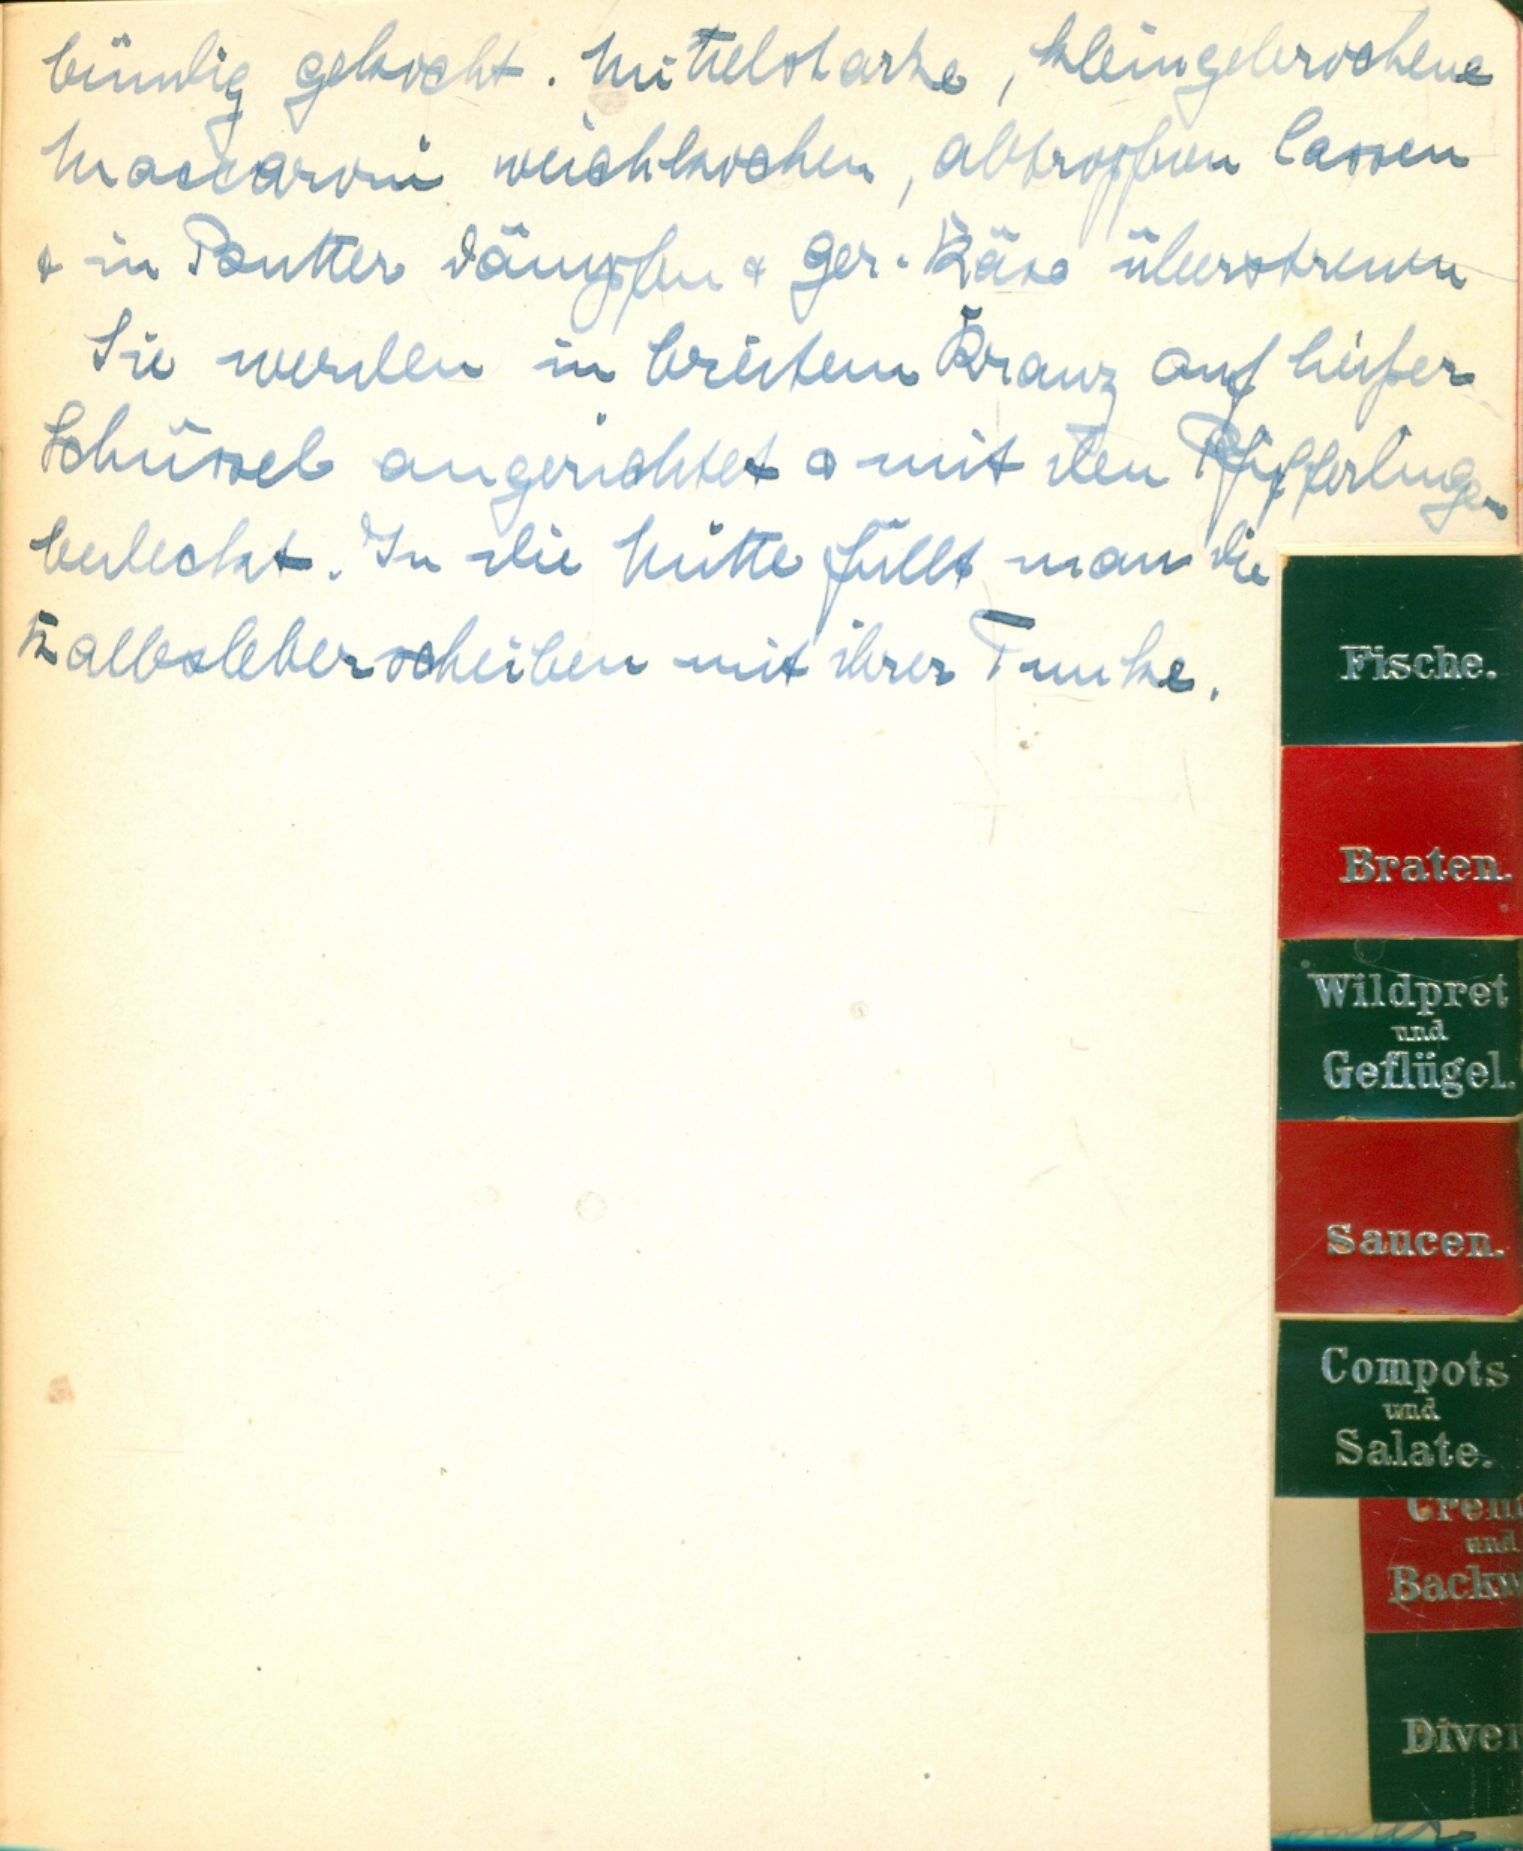 bündig gekocht. Mittelstarke, kleingebrochene
Maccaroni weichkochen, abtropfen lassen
& in Butter dämpfen & ger. Käse überstreuen
Sie werden in breitem Kranz auf heißer
Schüssel angerichtet & mit den Pfifferlingen
bedeckt. In die Mitte füllt man die
Kalbsleberscheiben mit ihrer Tunke.
Fische.
Braten.
Wildpret
und
Geflügel.
Saucen.
Compots
und
Salate.
Crem
und
Backw
Diver